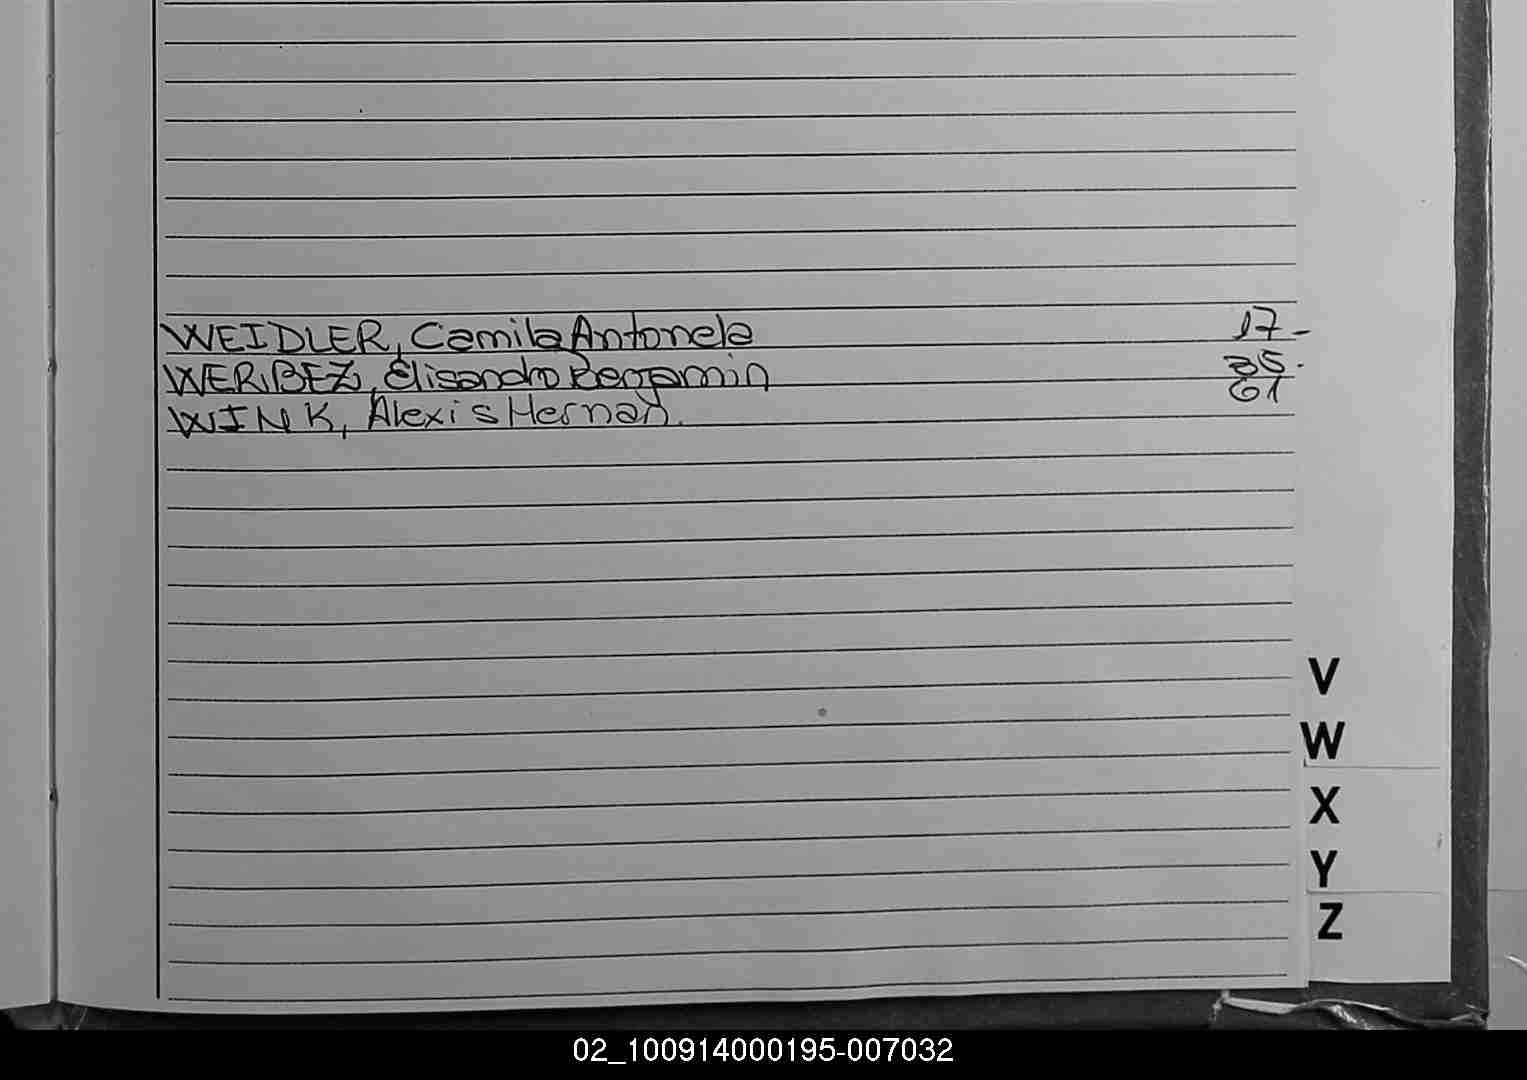 WEIDLER, Camila Antonela 17-
WERBEZ, Elisandro Benjamin 35.
WINK, Alexis Hernan. 61
V
W
X
Y
Z
02_100914000195-007032